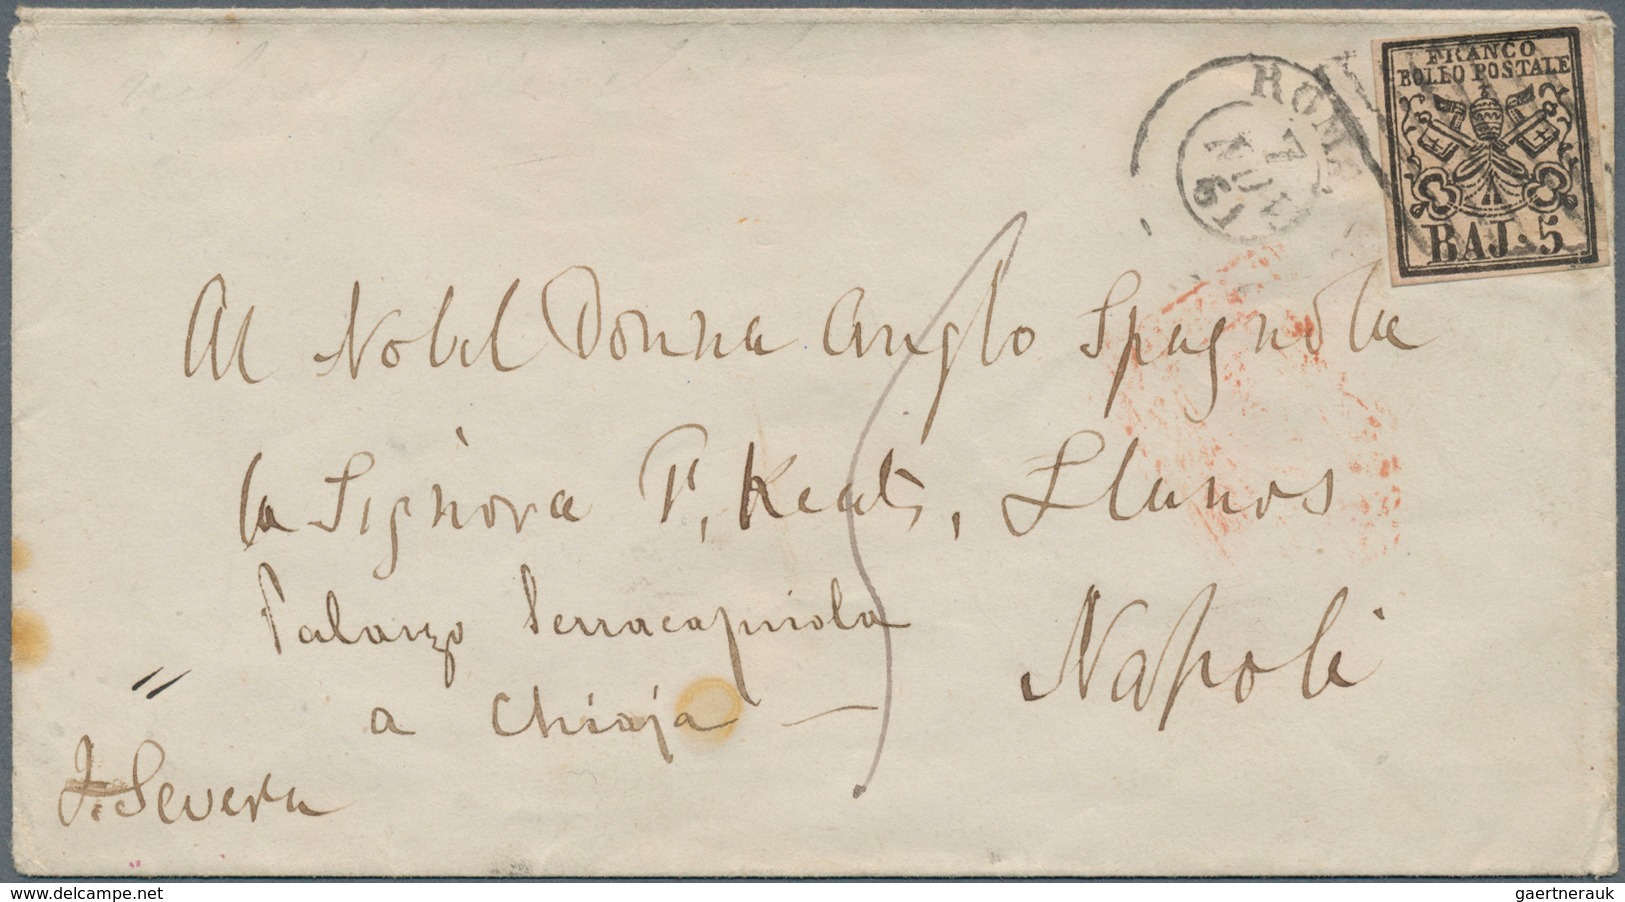 FRANCO
BOLLO POSTALE
BAJ. 5
ROMA
7
NOV
61
Al Nobel Donna Anglo Spagnola
la Signora F, Keats, Llanos
Palazzo Serracapriola
a Chiaja — Napoli
J. Severn
www.delcampe.net
gaertnerauk